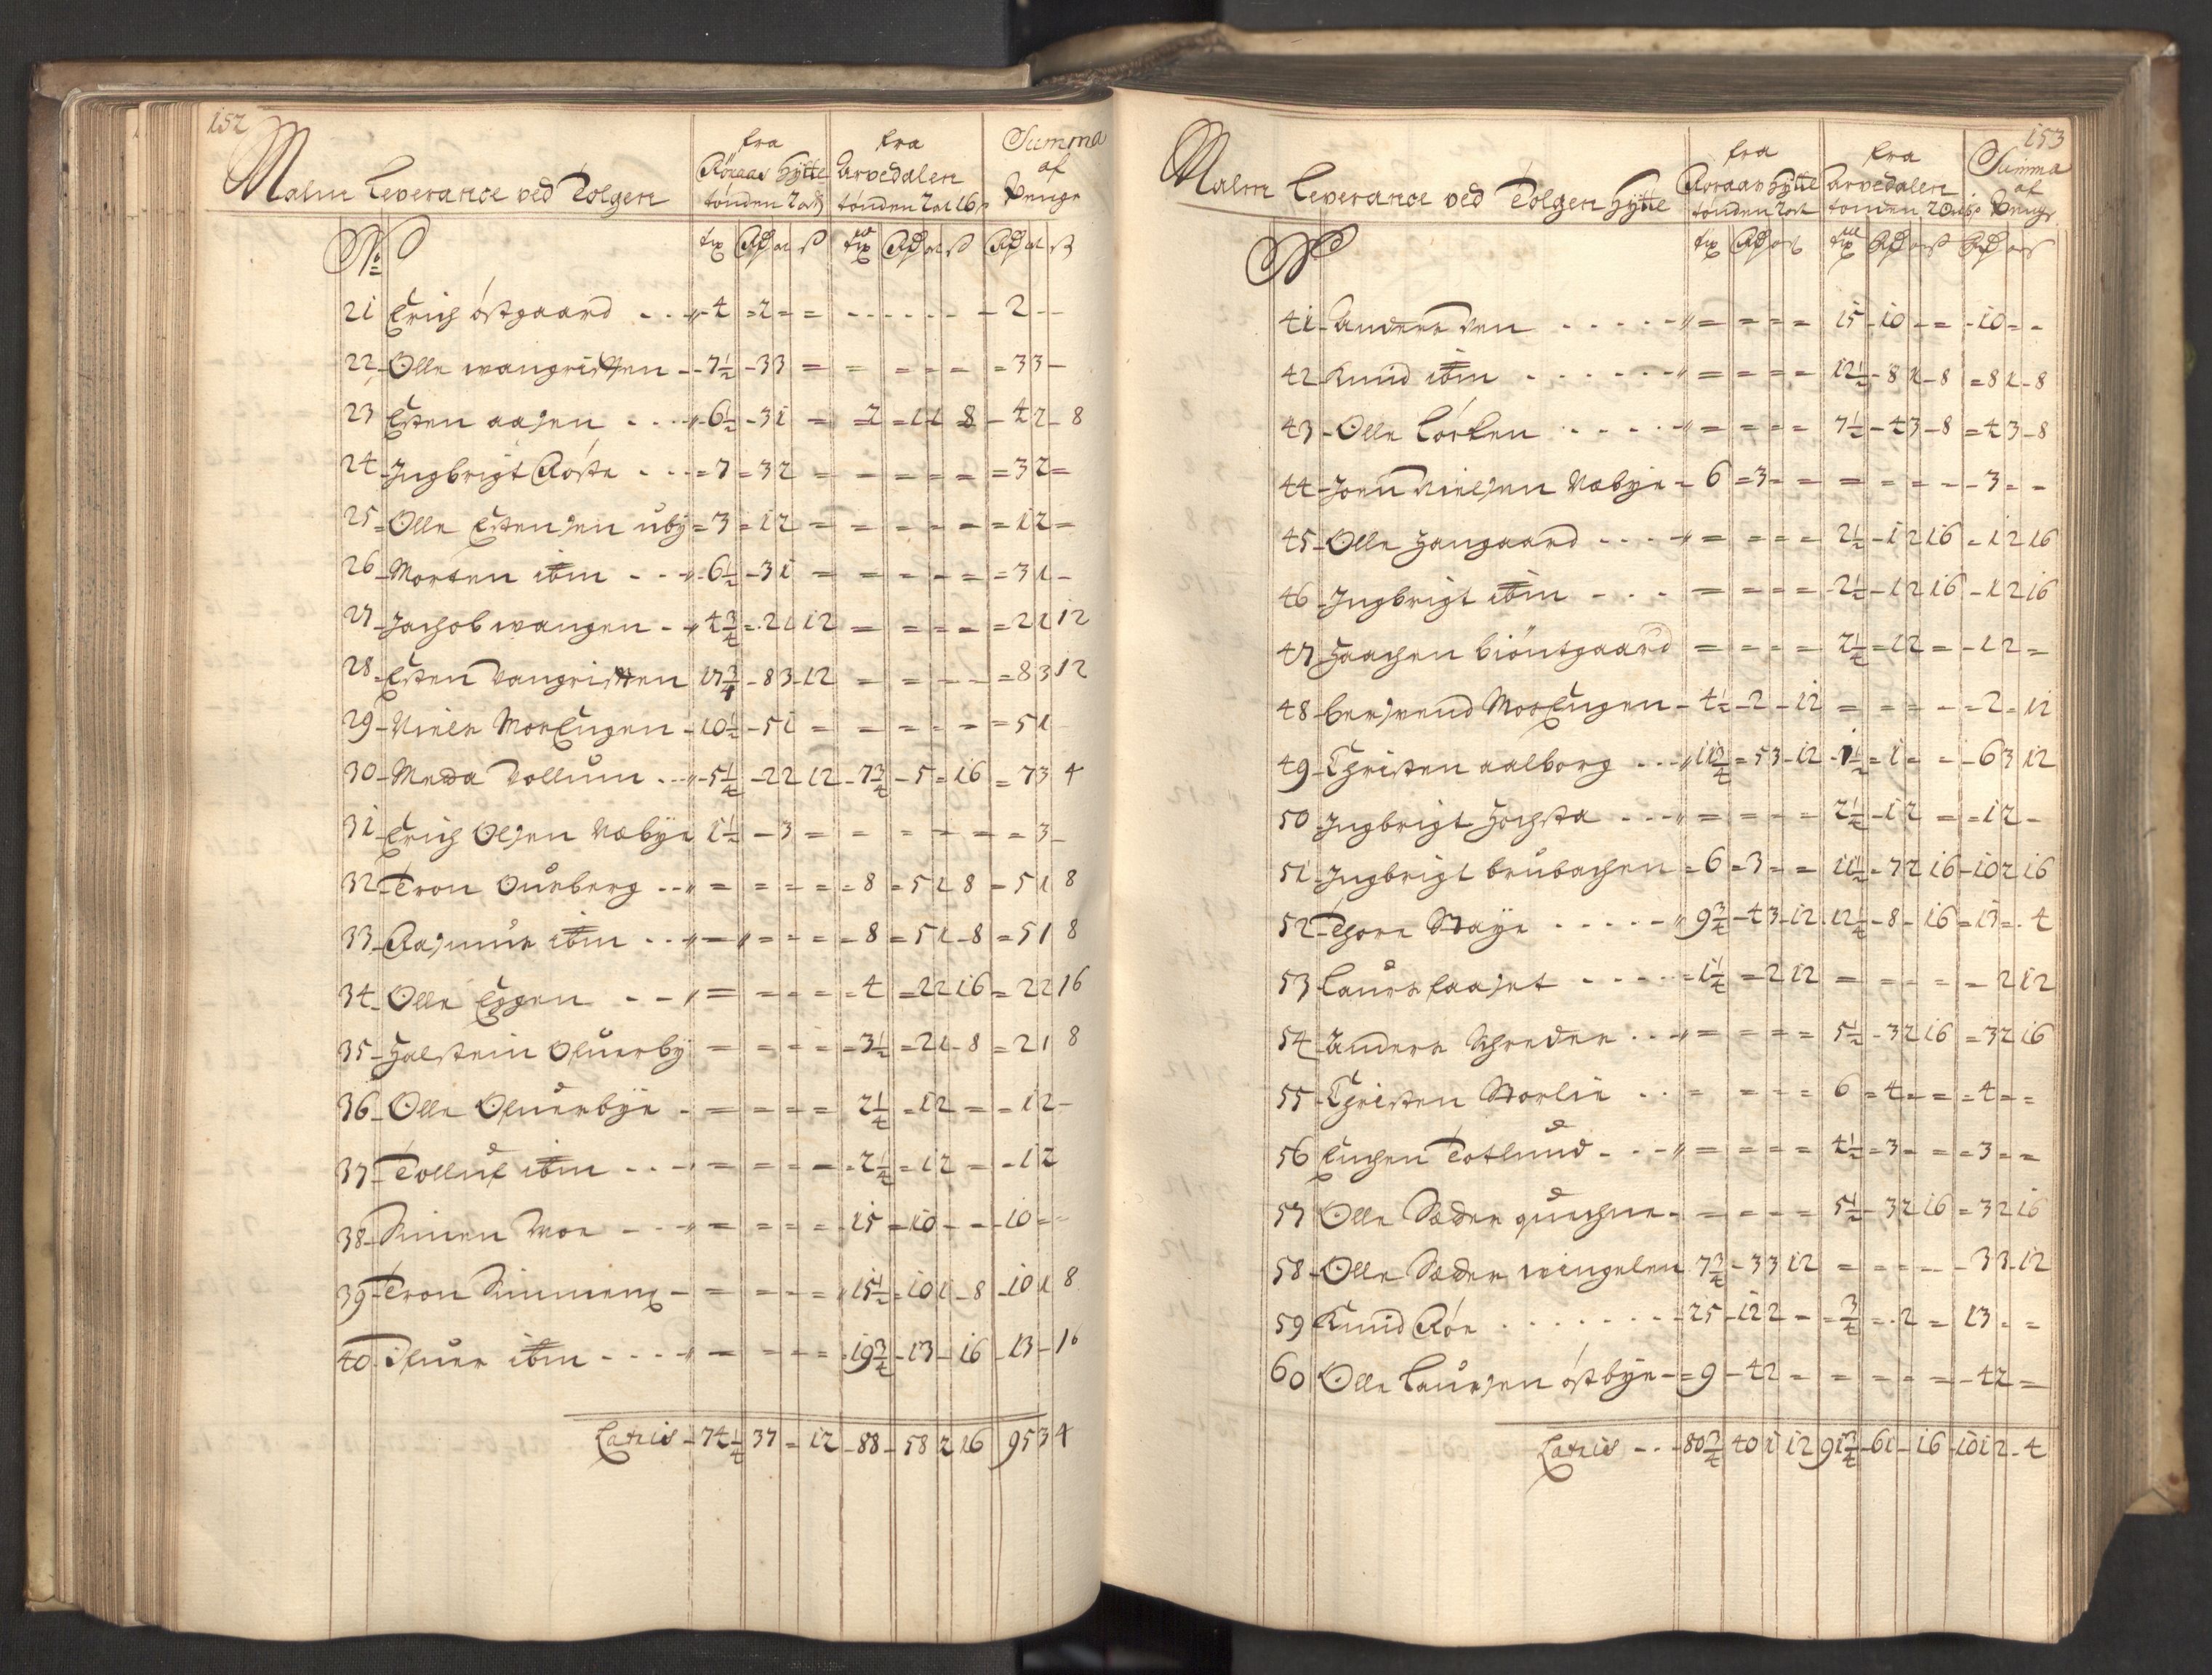 152
Malm Leverance ved Tolgen
fra Röraas Hytte tónden 2 ort
fra Arvedalen tónden 2 ort 16 s
Summa af Penge
No
21 Erich óstgaard - 4 = 2 - - - 2 - -
22 Olle wangristen - 7½ - 33 = = = - 33 -
23 Esten aasen - 6½ - 31 = 2 = 11 8 - 42 - 8
24 Ingbrigt Róste = 7 = 32 = = 32 =
25 Olle Estensen uby = 3 = 12 = = 12 =
26 Morten ibm - 6½ - 31 = = 31 -
27 Jachob wangen - 4¾ = 21 12 = = 21 12
28 Esten Vangristen 17¾ - 83 - 12 - = 83 12
29 Niels MorEngen - 10½ - 51 = = 51
30 Meda Vollum - 5¼ - 22 12 - 7¾ - 5 = 16 = 73 4
31 Erich Olsen Næbye 1½ - 3 = = 3 -
32 Tron Ourberg = = 8 = 51 8 = 51 8
33 Rasmus ibm = = 8 = 51 - 8 = 51 8
34 Olle Eggen = = 4 = 22 16 = 22 16
35 Halstein Ofuerby = = 3½ = 21 - 8 = 21 8
36 Olle Ofuerbye - = 2¼ = 12 = - 12 -
37 Tolluf ibm - = 2¼ = 12 = - 12
38 Simen Moe - = 15 = 10 - - 10 = =
39 Tron Simmeng - = 15½ = 10 1 - 8 - 10 1 8
40 Ifuer ibm - = 19¾ - 13 - 16 - 13 - 16
Latris - 74¼ 37 - 12 - 88 - 58 2 16 953 4
153
Malm Leverance ved Tolgen Hytte
fra Röraas Hytte tónden 2 ort
fra Arvedalen tonden 2 Ort 16 s
Summa af Penge
No
41 Anders Ven = = 15 - 10 - = - 10 = -
42 Knud ibm = = 12½ - 8 1 - 8 = 81 - 8
43 Olle Lórken = = 7½ - 43 - 8 = 43 - 8
44 Joen Nielsen Næbye - 6 = 3 - - = - 3 - -
45 Olle Haugaard = = 2½ - 12 16 - 12 16
46 Ingbrigt ibm = = 2½ - 12 16 - 12 16
47 Haachen Biöntgaard = = 2¼ = 12 = - 12 =
48 Bersvend MorEngen - 4½ - 2 - 12 = = 2 - 12
49 Christen aalborg 11¾ = 53 - 12 - 1½ = 1 = - 63 12
50 Ingbrigt Hochsta = = 2¼ - 12 = = 12 -
51 Ingbrigt brubachen = 6 = 3 - = 11½ = 72 16 - 102 16
52 Thore Staye 9¾ - 43 - 12 12¼ - 8 - 16 = 13 = 4
53 Laurs faaset - 1¼ = 2 12 = = 2 12
54 Anders Schreder = = 5½ - 32 16 = 32 16
55 Christen Storlie = = 6 = 4 - = = 4 = =
56 Engen Totlund = = 4½ = 3 - = = 3 = =
57 Olle Sæder quechne = = 5½ - 32 16 = 32 16
58 Olle Sæder vingelen 7¾ - 33 12 = - 33 - 12
59 Knud Róe 25 - 122 - = ¾ = 2 = 13 - =
60 Olle Laursen óstbye = 9 - 42 = = - 42 =
Latris 80¾ 40 1 12 91¾ - 61 - 16 - 1012 - 4